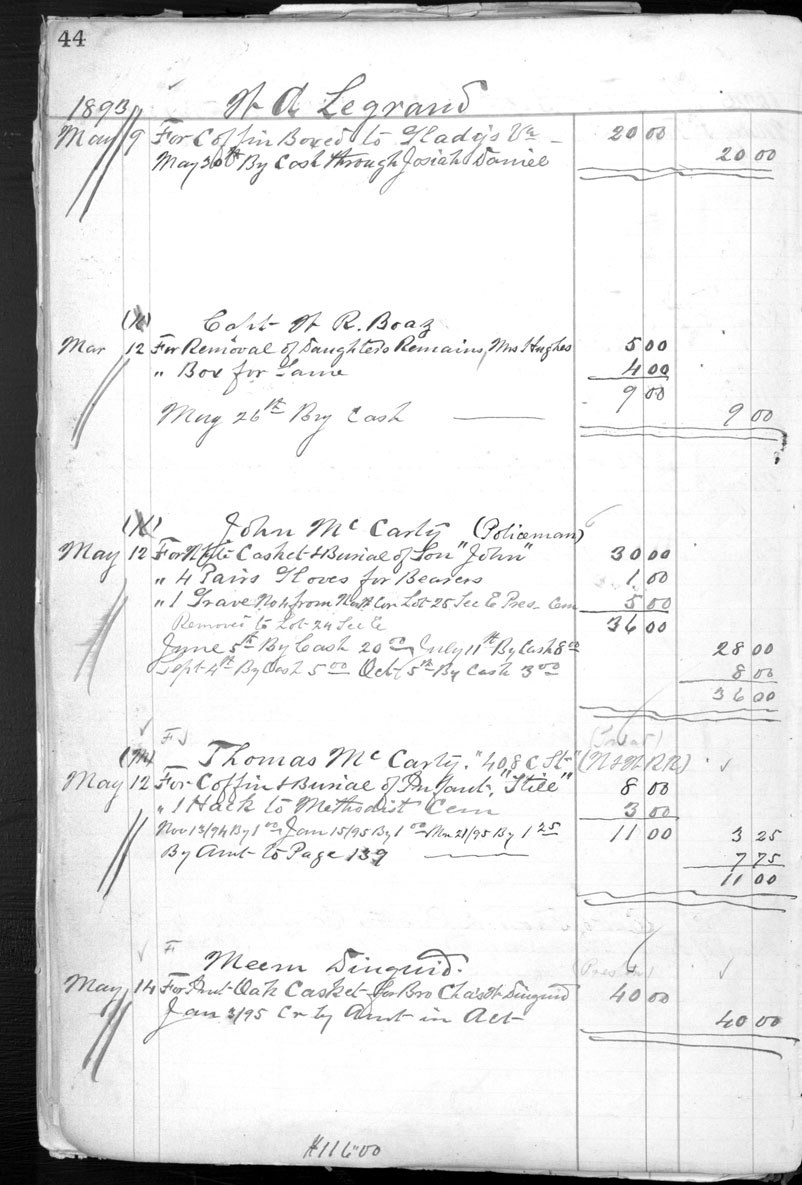 44
1893 W A Legrand
May 9 For Coffin Boxed to Gladys Va 20 00
May 30th By Cash through Josiah Daniel 20 00
Capt W R. Boaz
Mar 12 For Removal of Daughters Remains, Mrs Hughes 5 00
" Box for Same 4 00
9 00
May 26th By Cash 9 00
John Mc Carty (Policeman)
May 12 For Wite Casket & Burial of Son "John" 30 00
" 4 Pairs Gloves for Bearers 1 00
" 1 Grave No 4 from North Cor Lot 25 Sec E Pres. Cem 5 00
Removed to Lot 24 Sec E 36 00
June 5th By Cash 20 00 July 11th By Cash 8 00 28 00
Sept 4th By Cash 5 00 Oct 5th By Cash 3 00 8 00
36 00
F
Thomas Mc Carty. "408 C St" (N & W R R)
May 12 For Coffin & Burial of Infant, "Still" 8 00
" 1 Hack to Methodist Cem 3 00
Nov 13/94 By 1 00 Jan 15/95 By 1 00 Mar 21/95 By 1 25 11 00 3 25
By Amt to Page 139 7 75
11 00
F
Meem Dinguid.
May 14 For Imt Oak Casket for Bro Chas W Dinguid 40 00
Jan 3/95 Cr by Amt in Act 40 00
$116.00